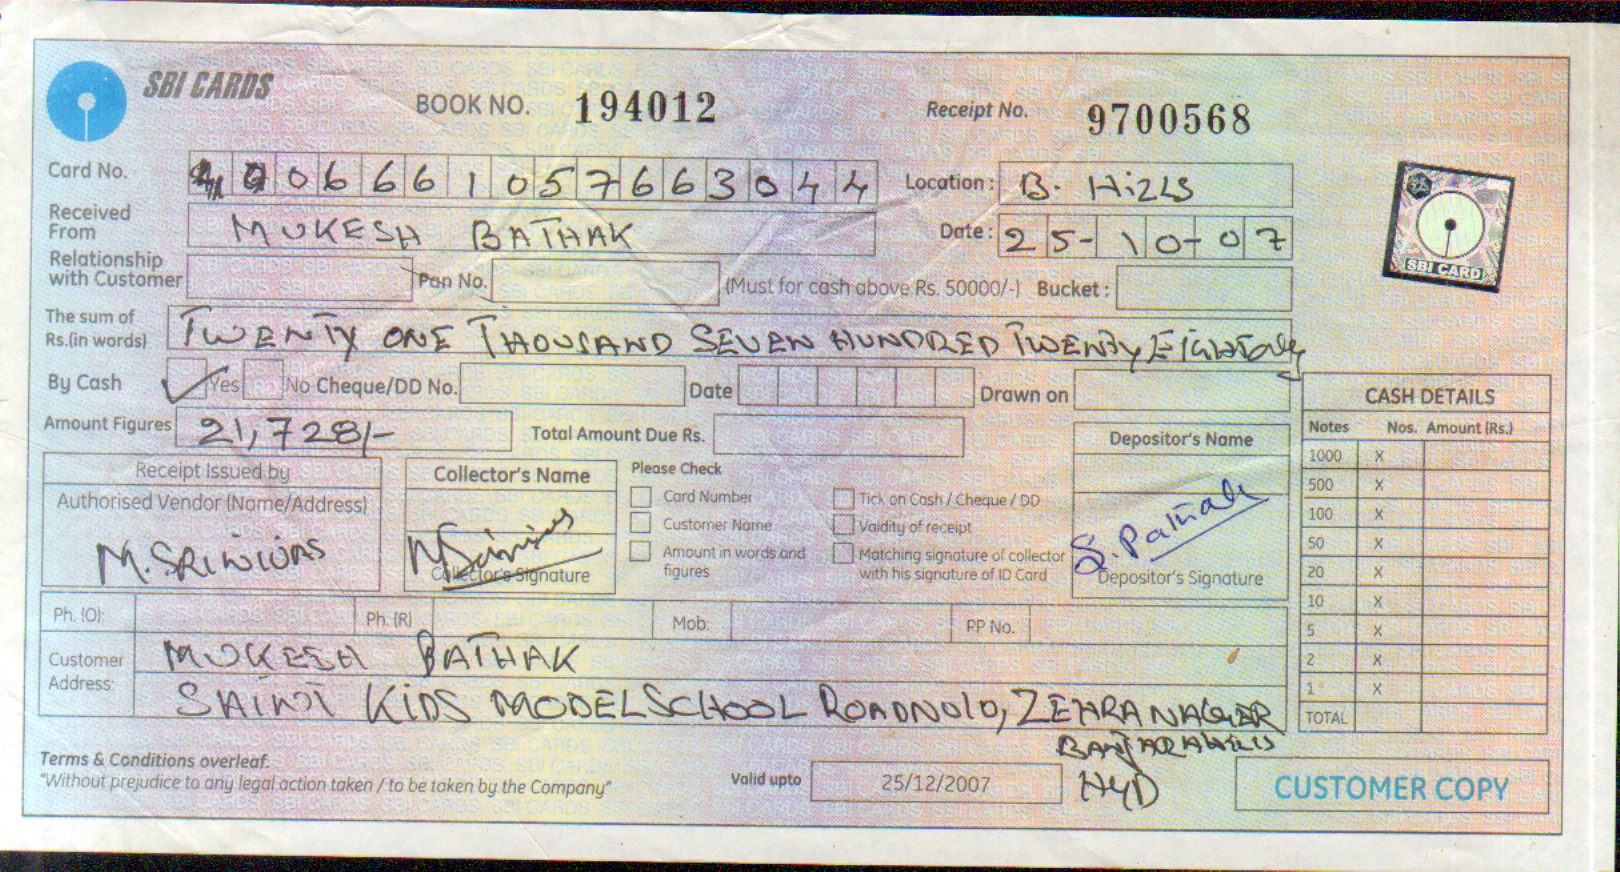 SBI CARDS
BOOK NO. 194012
Receipt No. 9700568
Card No. 0 6 6 6 1 0 5 7 6 6 3 0 4 4
Location : B. Hills
Received From MUKESH BATHAK
Date : 25-10-07
Relationship with Customer
Pan No.
(Must for cash above Rs. 50000/-) Bucket :
SBI CARD
The sum of Rs.(in words) TWENTY ONE THOUSAND SEVEN HUNDRED TWENTY EIGHT only
By Cash Yes No Cheque/DD No.
Date
Drawn on
Amount Figures 21,728/-
Total Amount Due Rs.
Receipt Issued by
Authorised Vendor (Name/Address)
M. SRINIVAS
Collector's Name
Collector's Signature
Please Check
Card Number
Customer Name
Amount in words and figures
Tick on Cash / Cheque / DD
Validity of receipt
Matching signature of collector with his signature of ID Card
Depositor's Name
S. Pathak
Depositor's Signature
CASH DETAILS
Notes Nos. Amount (Rs.)
1000 X
500 X
100 X
50 X
20 X
10 X
5 X
2 X
1 X
TOTAL
Ph. (O):
Ph. (R)
Mob:
PP No.
Customer Address: MUKESH BATHAK
SAINT KIDS MODEL SCHOOL ROADNO10, ZEHRA NAGER
BANJARAHILLS
HYD
Terms & Conditions overleaf.
"Without prejudice to any legal action taken / to be taken by the Company"
Valid upto 25/12/2007
CUSTOMER COPY